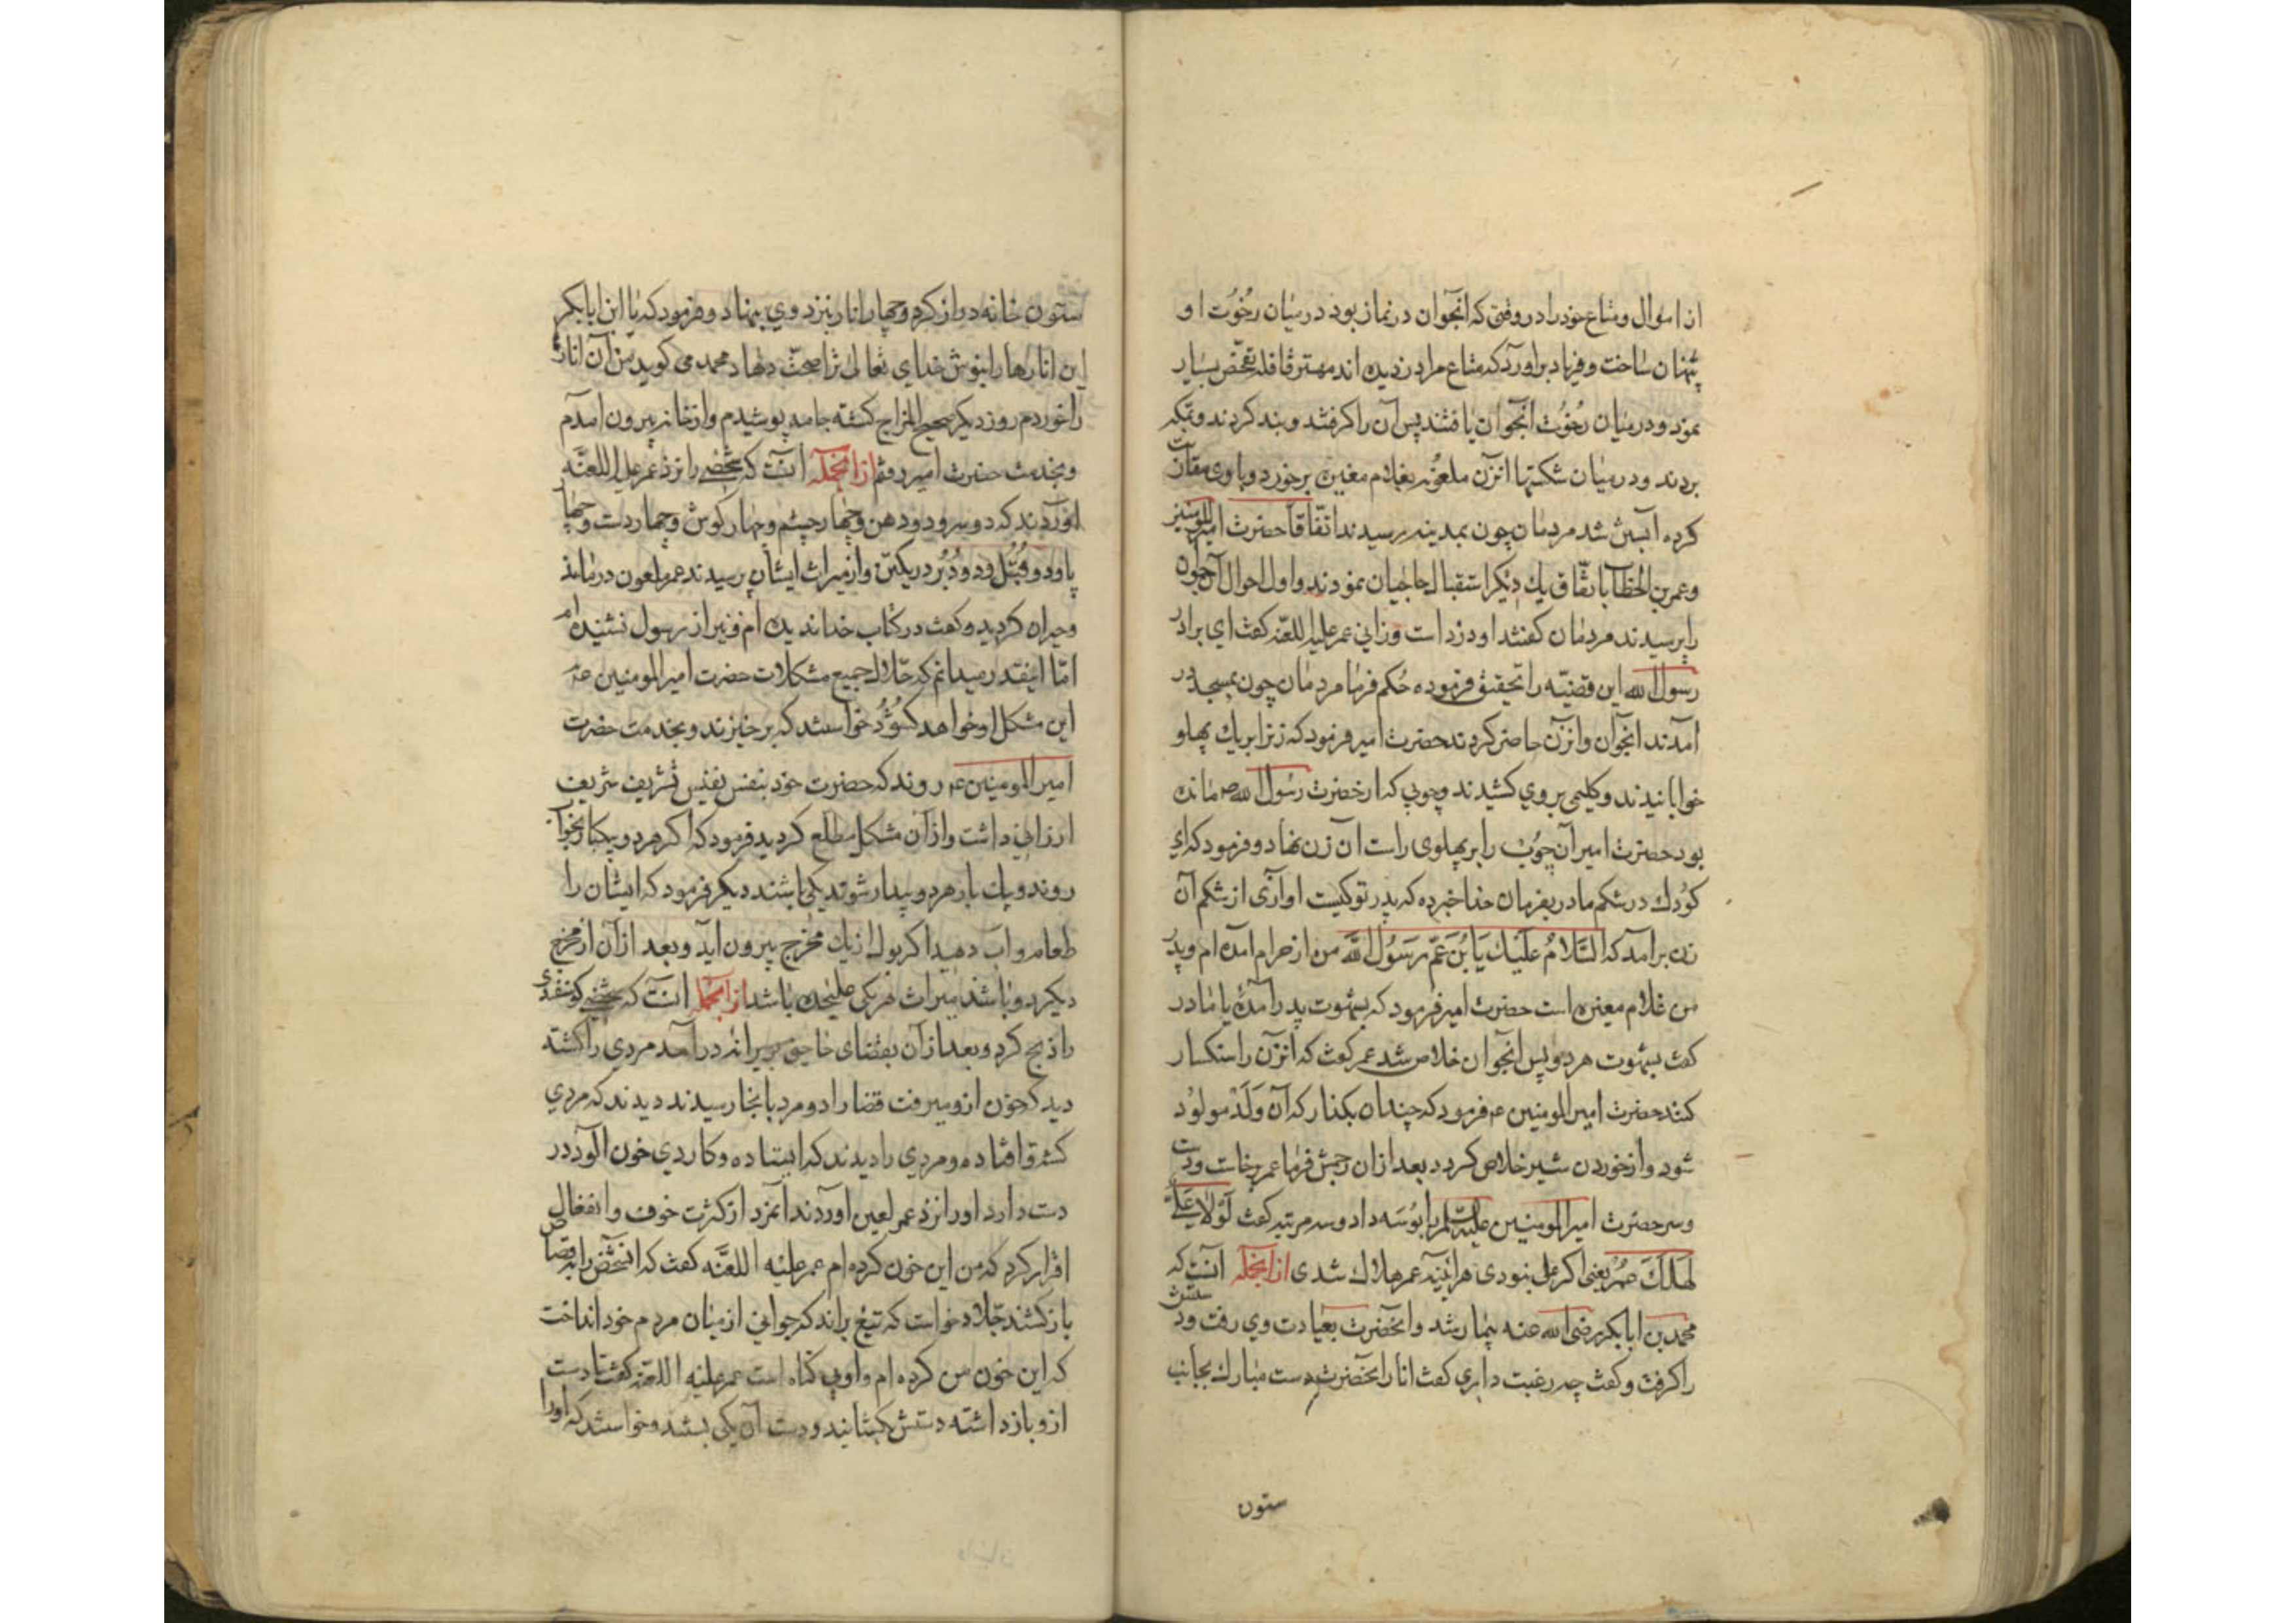 از اموال و متاع خود را در وقتی که انجوان در نماز بود در میان رخوت او
پنهان ساخت و فریاد برآورد که متاع مرا دزدیده اند مهتر قافله تفحص بسیار
نمود و در میان رخوت انجوان یافتند پس آن را گرفتند و بند کردند و بمکه
بردند و در میان شکتها انزن ملعونه بغلام مغیره برخورد و با وی مقاربت
کرده آبستن شد مردمان چون بمدینه رسیدند اتفاقا حضرت امیر المومنین
و عمر بن الخطاب باتفاق یک دیگر استقبال حاجیان نمودند و اول احوال آن جوان
را پرسیدند مردمان گفتند او دزد است و زانی عمر علیه اللعنه گفت ای برادر
رسول الله این قضیه را تحقیق فرموده حکم فرما مردمان چون بمسجد در
آمدند انجوان و انزن حاضر کردند حضرت امیر فرمود که زنرا بریک پهلو
خوابانیدند و کلیمی بر وی کشیدند و چوبی که از حضرت رسول الله ص مانده
بود حضرت امیر آن چوب را بر پهلوی راست آن زن نهاد و فرمود که ای
کودک در شکم مادر بفرمان خدا خبر ده که پدر تو کیست اوازی از شکم آن
زن برآمد که السلام علیک یا بن عم رسول الله من از حرام امده ام و پدر
من غلام مغیره است حضرت امیر فرمود که بشهوت پدر آمدهٔ یا مادر
گفت بشهوت هر دو پس انجوان خلاص شد عمر گفت که انزن را سنکسار
کنند حضرت امیر المومنین ع فرمود که چندان بگذار که آن ولد مولود
شود و از خوردن شیر خلاص گردد بعد از ان رجمش فرما عمر برخاست و دست
و سر حضرت امیر المومنین علیه السلم را بوسه داد و سه مرتبه گفت لولا علی
لهلک عمر یعنی اگر علی نبودی هر اینه عمر هلاک شدی از انجمله آنست که
محمد بن ابابکر رضی الله عنه بیمار شد و انحضرت بعیادت وی رفت و دستش
را گرفت و گفت چه رغبت داری گفت انار انحضرت دست مبارک بجانب
ستون
ستون خانه دراز کرد و چهار انار نزد وی بنهاد و فرمود که یا ابن ابابکر
این انارها را بنوش خدای تعالی ترا صحت دهاد محمد می گوید من آن انار
را خوردم روز دیگر صحیح المزاج گشته جامه پوشیدم و از خانه بیرون امدم
و بخدمت حضرت امیر رفتم از انجمله آنست که شخصی را نزد عمر علیه اللعنه
آوردند که دو سر و دو دهن و چهار چشم و چهار گوش و چهار دست و چهار
پا و دو قبل و دو دبر در یکتن و از میراث ایشان پرسیدند عمر ملعون درماند
و حیران گردید و گفت در کتاب خدا ندیده ام و نیز از رسول نشنیده ام
اما اینقدر میدانم که حلال جمیع مشکلات حضرت امیر المومنین ع
این مشکل او خواهد گشود خواستند که برخیزند و بخدمت حضرت
امیر المومنین ع روند که حضرت خود بنفس نفیس تشریف شریف
ارزانی داشت و از آن مشکل مطلع گردید فرمود که اگر هر دو یکبار بخواب
روند و یک بار هر دو بیدار شوند یکی باشند دیگر فرمود که ایشان را
طعام و آب دهید اگر بول از یک مخرج بیرون اید و بعد از آن از مخرج
دیگر دو باشند میراث هر یکی علیحده باشد از انجمله انست که شخصی گوسفندی
را ذبح کرد و بعد از آن بقضای حاجت بویرانه درآمد مردی را کشته
دید که خون ازو میرفت قضا را دو مرد بانجا رسیدند دیدند که مردی
کشته افتاده و مردی را دیدند که ایستاده و کاردی خون آلود در
دست دارد او را نزد عمر لعین اوردند انمرد از کثرت خوف و انفعال
اقرار کرد که من این خون کرده ام عمر علیه اللعنه گفت که انشخص را بقصاص
باز کشند جلاد خواست که تیغ براند که جوانی از میان مردم خود انداخت
که این خون من کرده ام و او بی گناه است عمر علیه اللعنه گفت تا دست
ازو باز داشته دستش بگشایند و دست آن یکی بستند و خواستند که او را